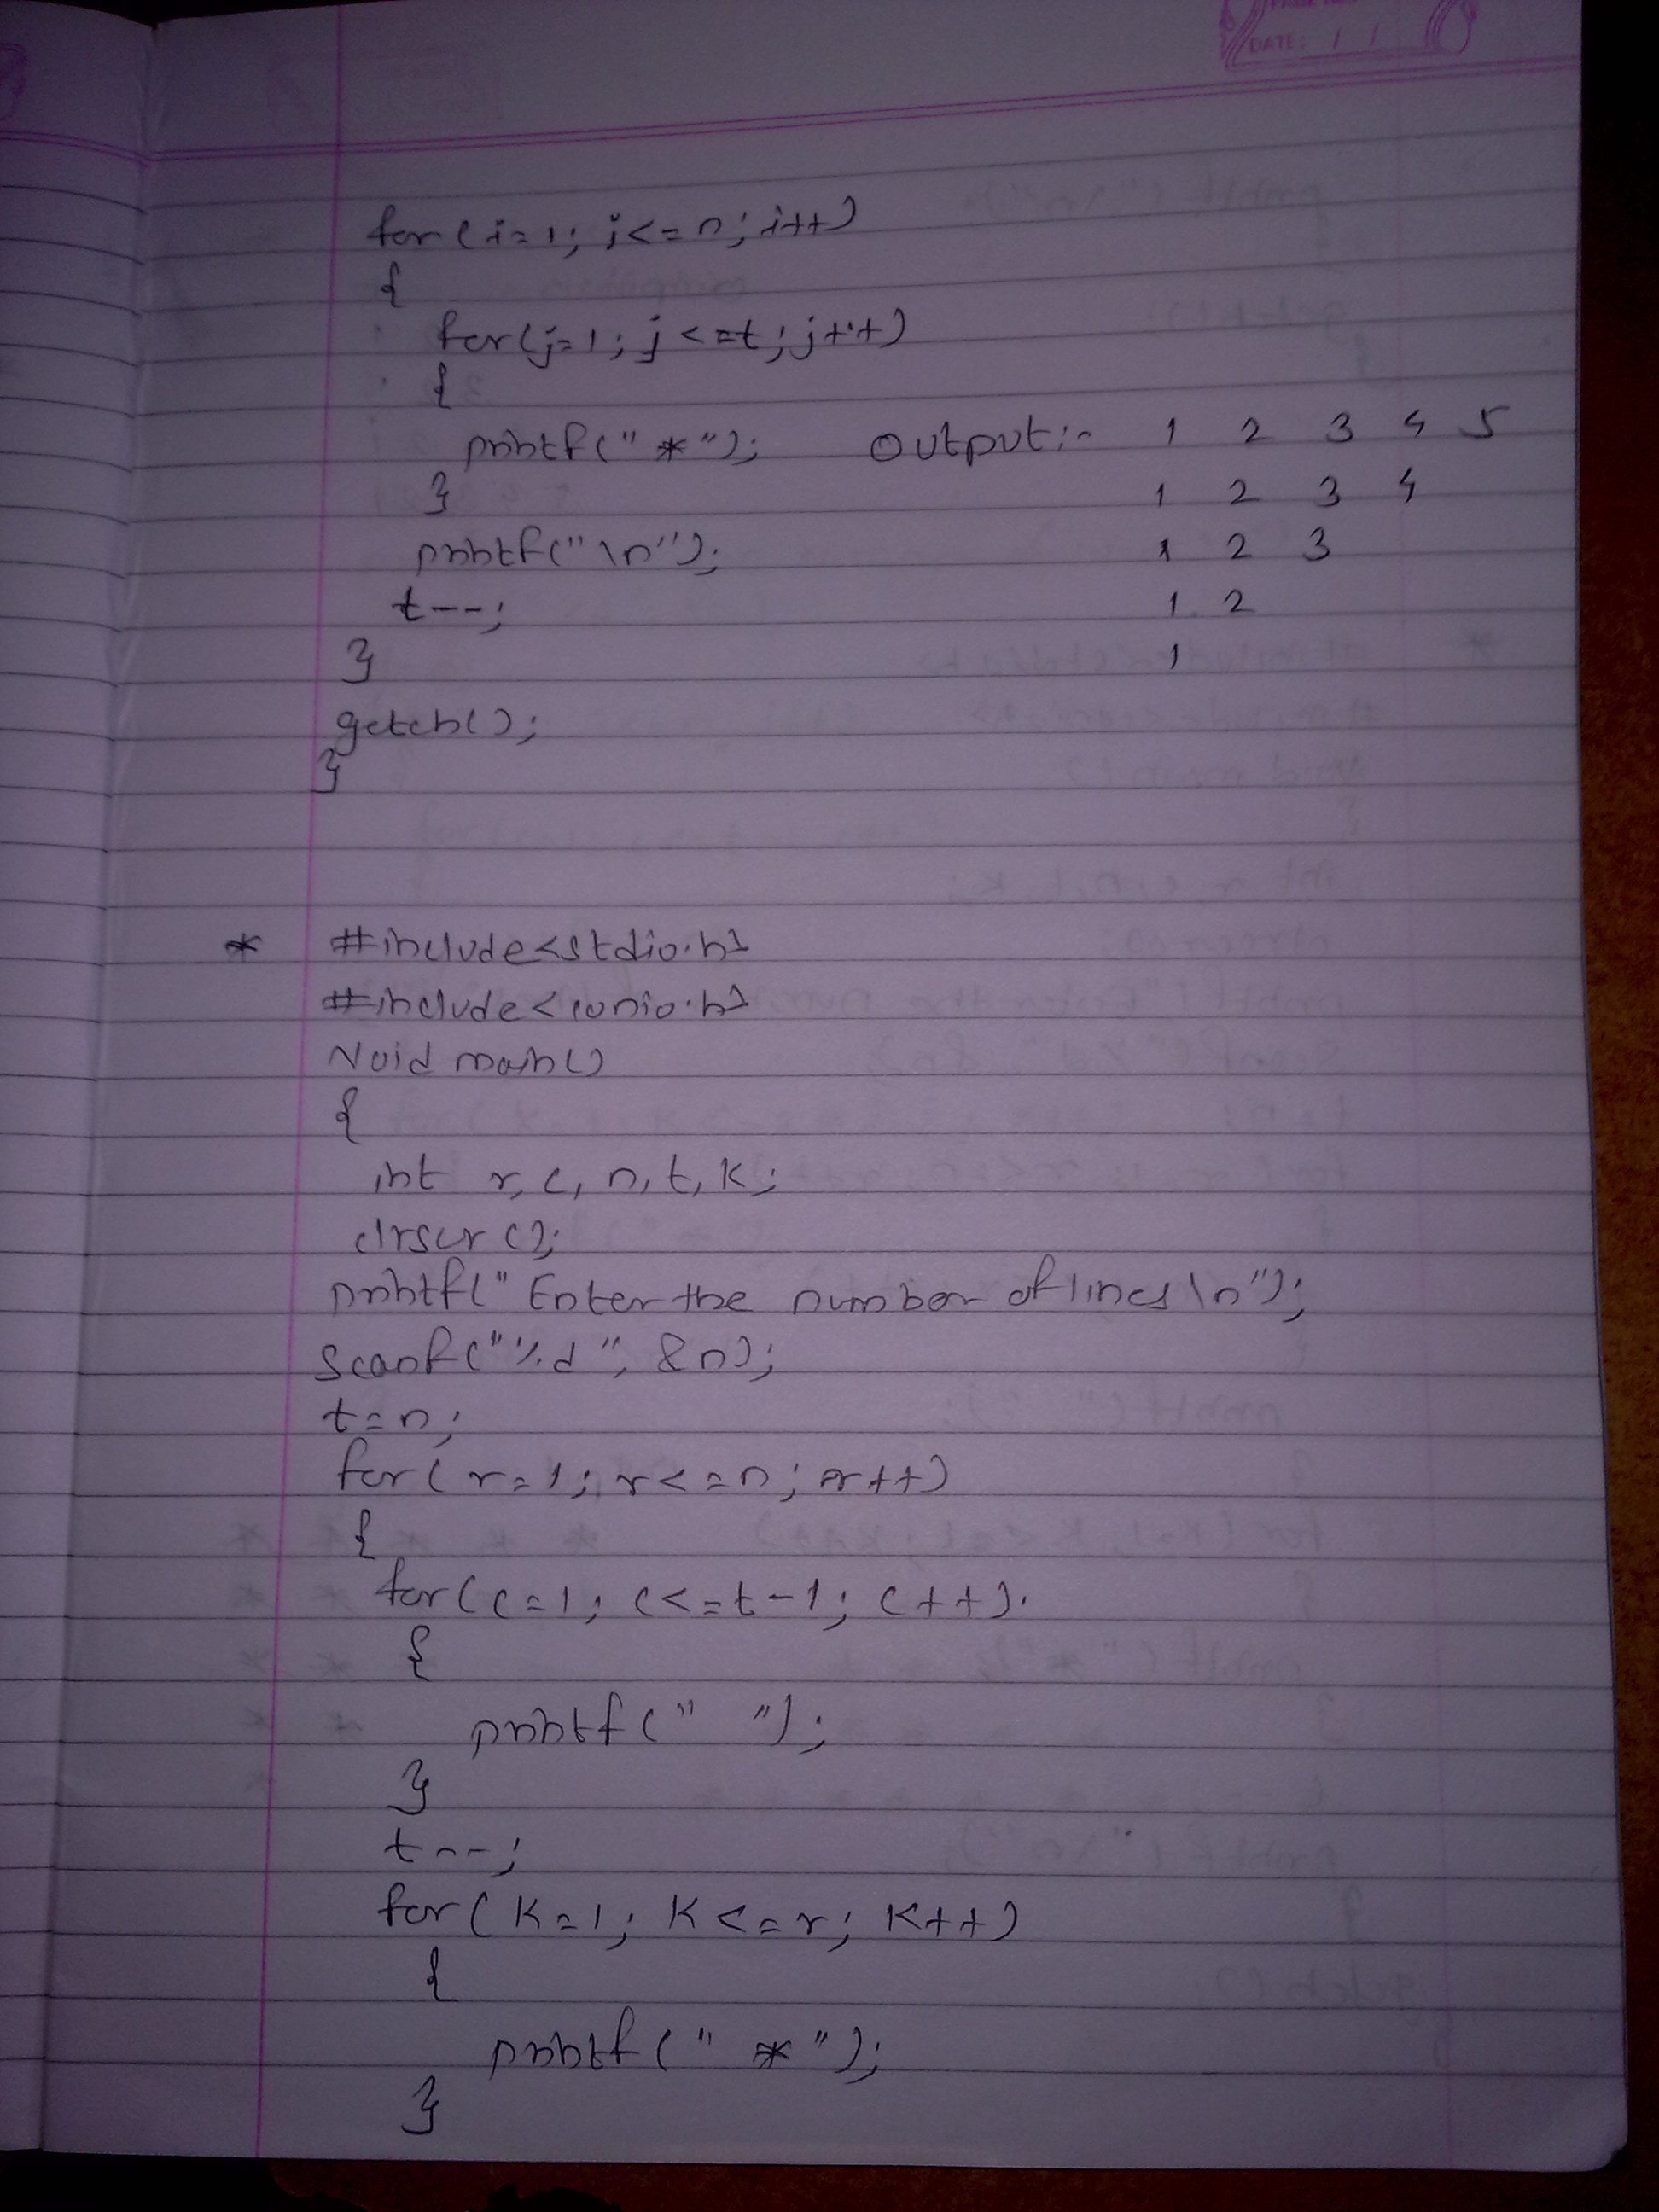 DATE: / /
for(i=1; i<=n; i++)
{
for(j=1; j<=t; j++)
{
printf(" * "); Output:- 1 2 3 4 5
} 1 2 3 4
printf("\n"); 1 2 3
t--; 1 2
} 1
getch();
}
* #include<stdio.h>
#include<conio.h>
Void main()
{
int r, c, n, t, k;
clrscr();
printf(" Enter the number of lines \n");
scanf("%d", &n);
t=n;
for(r=1; r<=n; r++)
{
for(c=1; c<=t-1; c++).
{
printf(" ");
}
t--;
for(k=1; k<=r; k++)
{
printf(" * ");
}